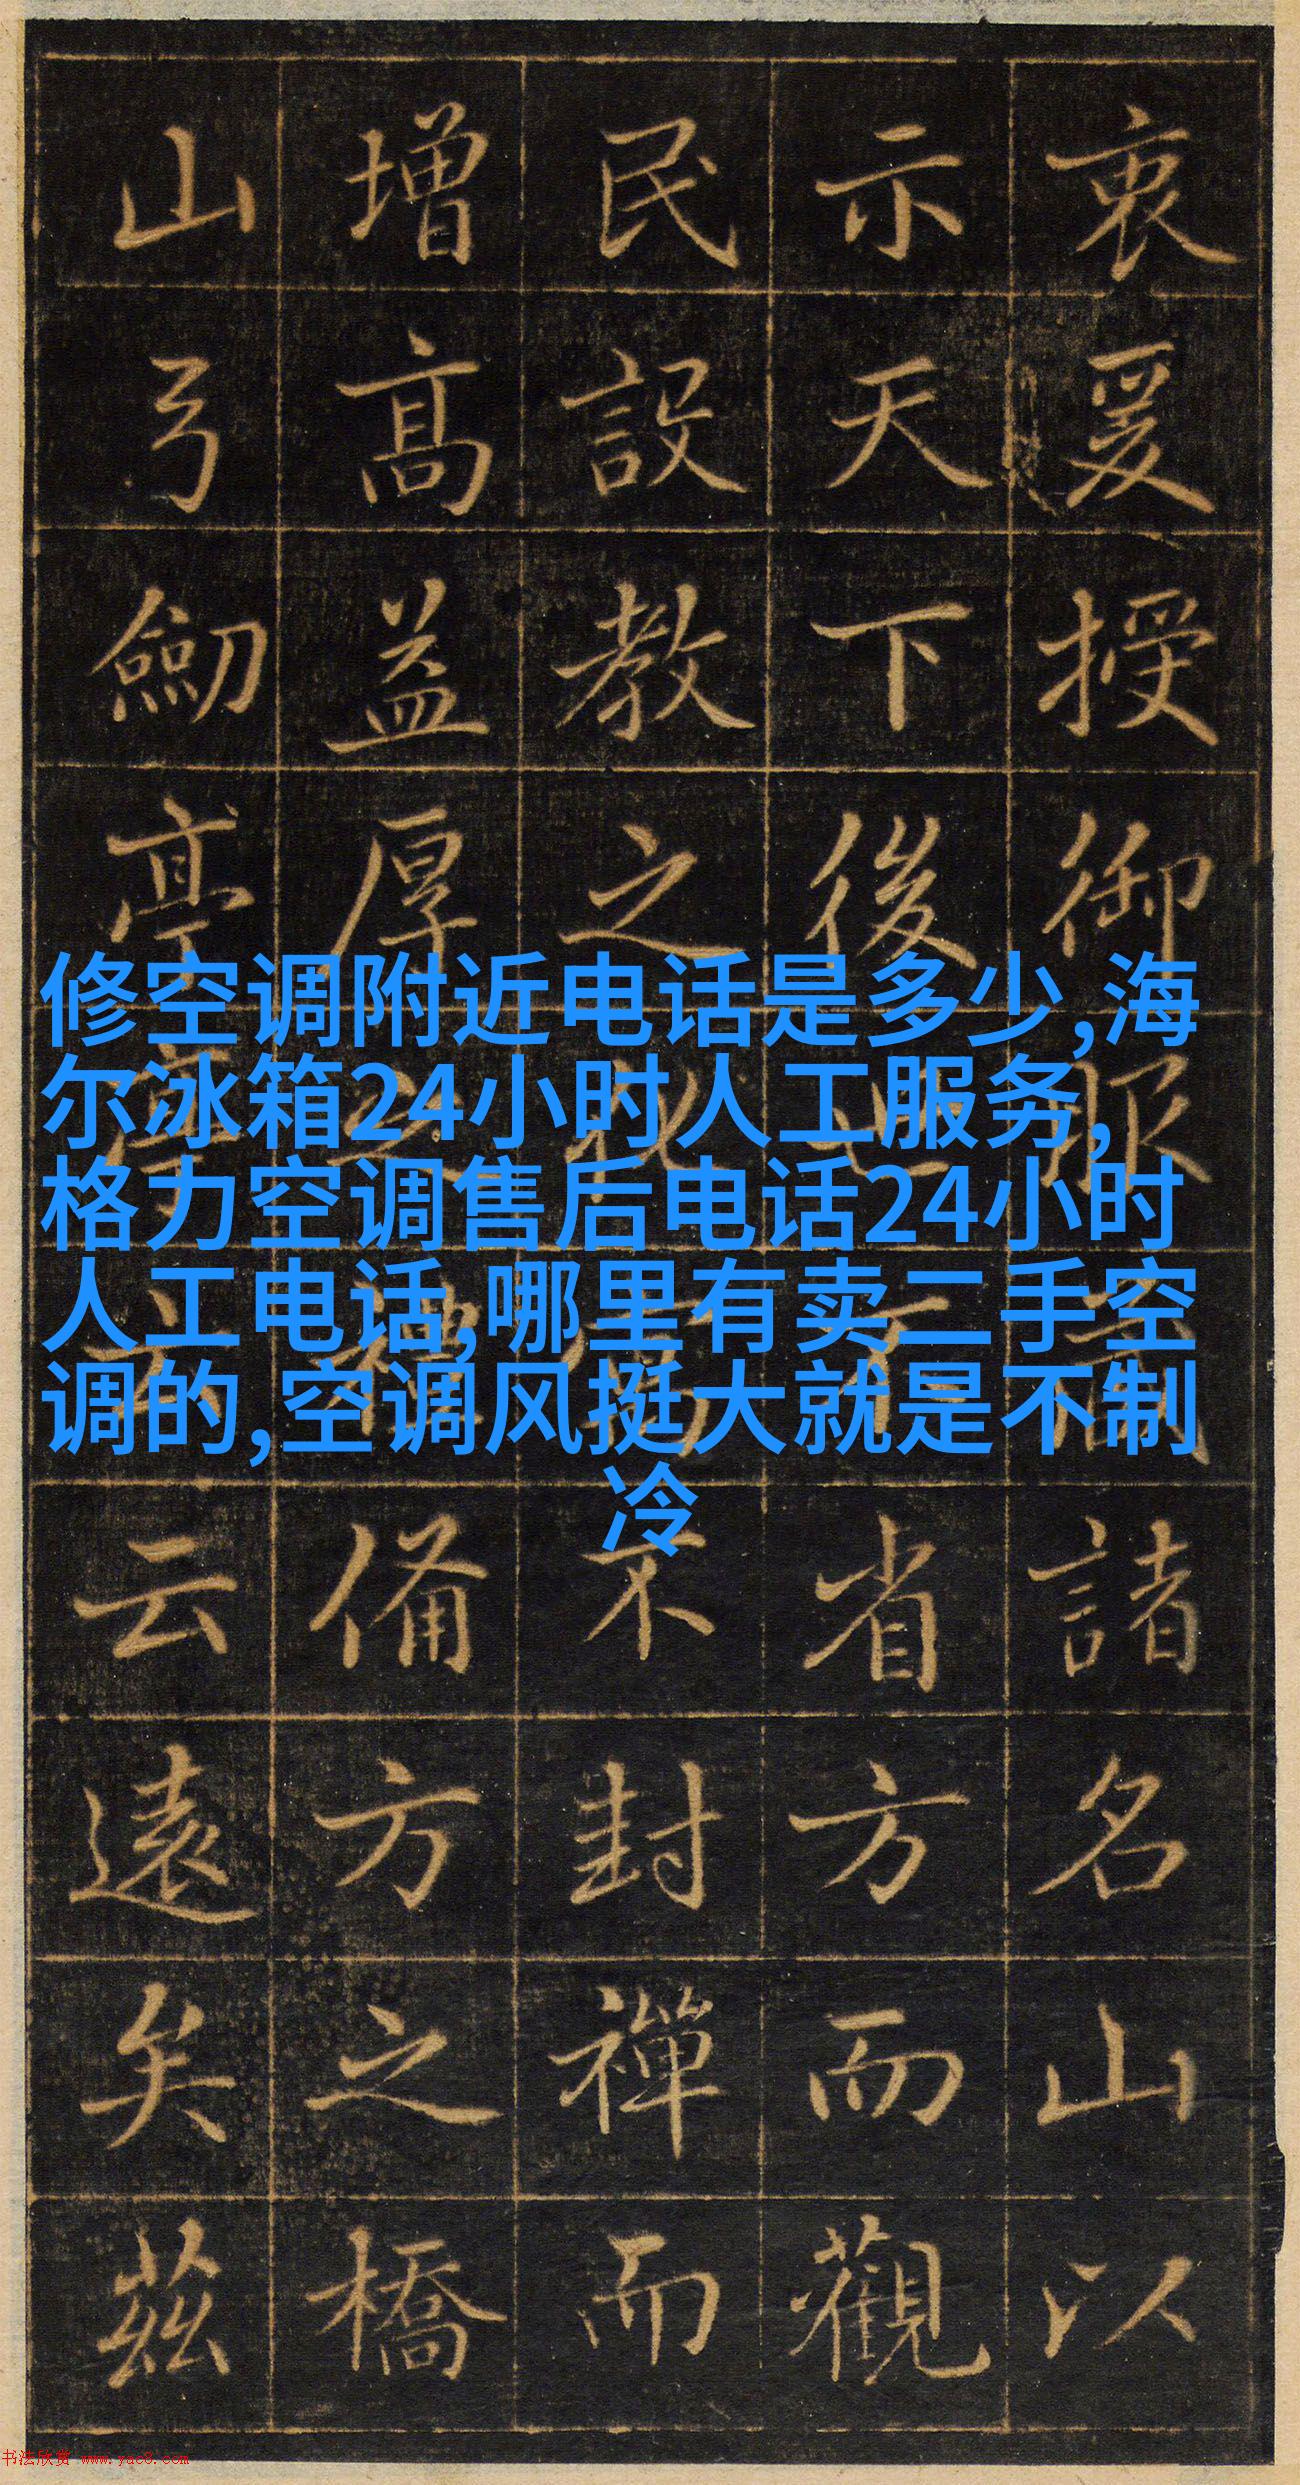 衷爰授御服藏諸名山以
示天下後世省方而觀
民設教之不封禪而
增高益厚之備方之橋
山弓劒亭亭云遠矣茲
修空调附近电话是多少,海
尔冰箱24小时人工服务,
格力空调售后电话24小时
人工电话,哪里有卖二手空
调的,空调风挺大就是不制
冷
书法欣赏 www.yac8.com